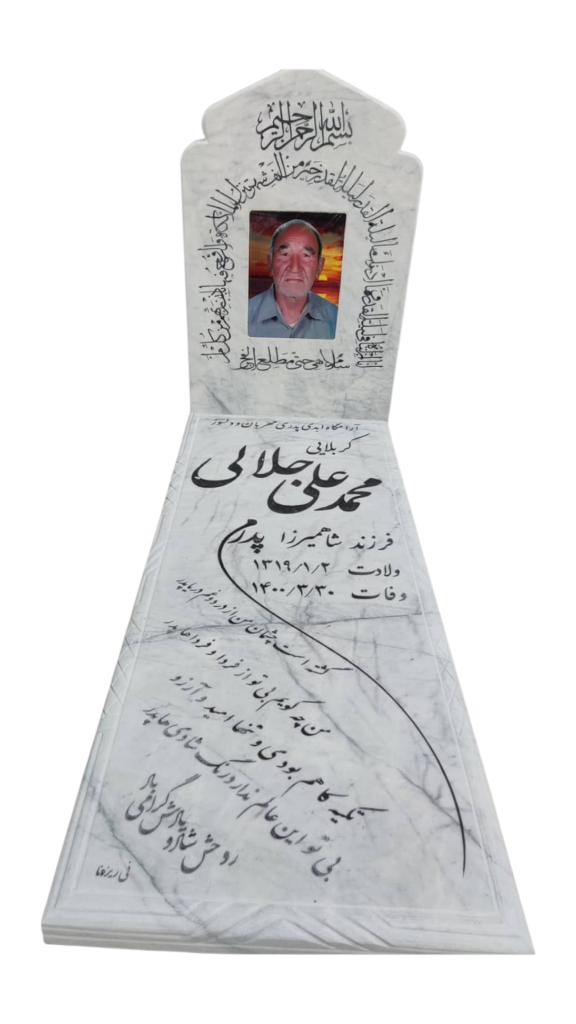 بسم الله الرحمن الرحیم
انا انزلناه فی لیلة القدر و ما ادراک ما لیلة القدر لیلة القدر خیر من الف شهر تنزل الملائکة و الروح فیها باذن ربهم من کل امر
سلام هی حتی مطلع الفجر
آرامگاه ابدی پدری مهربان و دلسوز
کربلایی
محمد علی جلالی
فرزند شاهمیرزا پدرم
ولادت ۱۳۱۹/۱/۲
وفات ۱۴۰۰/۳/۳۰
گشته است چشمان من از درد و غم دریا پدر
من چه گویم بی تو از فردا و فرداها پدر
تکیه گاهم بودی و تنها امید و آرزو
بی تو این عالم ندارد رنگ شادی ها پدر
روحش شاد و
یادش گرامی باد